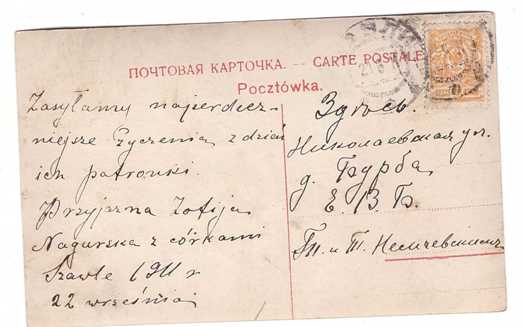 ПОЧТОВАЯ КАРТОЧКА. — CARTE POSTALE
Pocztówka.
Zasyłamy najserdecz-
niejsze życzenia z dzień
ich patronki.
Przyjazna Zofija
Nagurska z córkami
Szawle 1911 r
22 września
Здѣсь.
Николаевская ул.
д. Бурба
Е. В. Б.
Т. и Т.